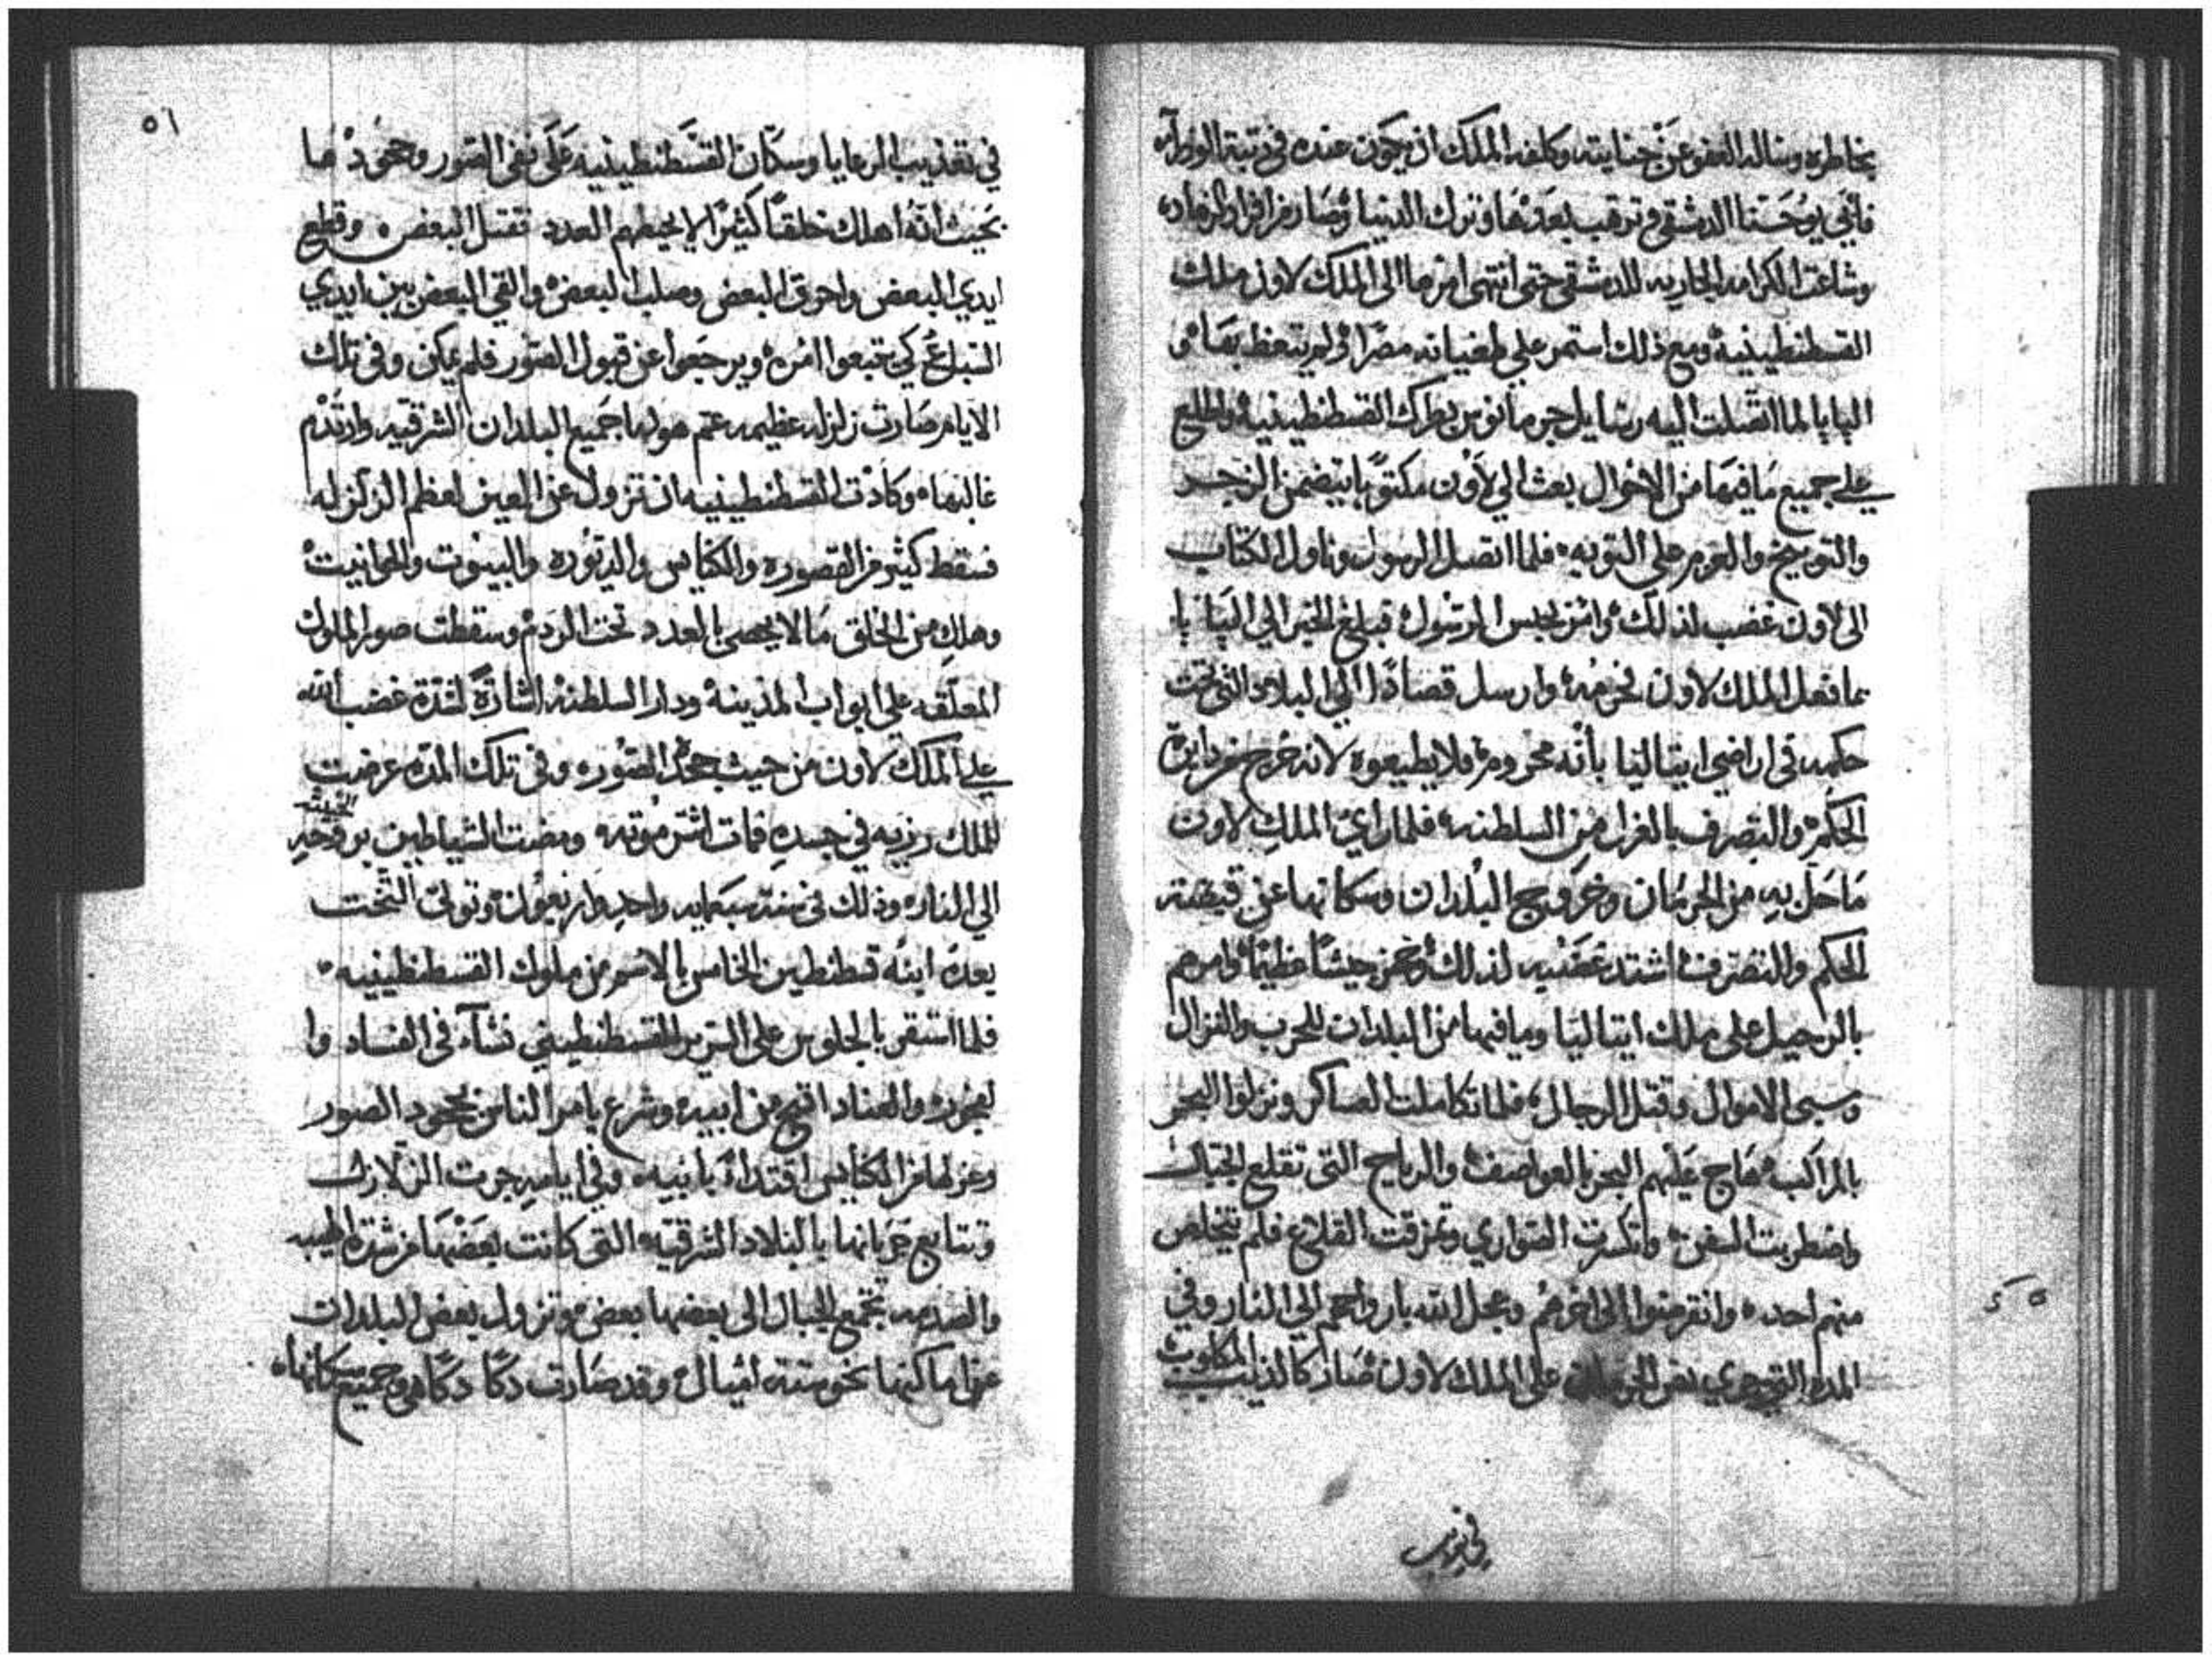 بخاطره وساله العفو عن جنايته وكلفه الملك ان يكون عنده في رتبة الوزرآء
فابي يوحنا الدمشقي وترهب بعدها وترك الدنيا وصار من افراد الزهاد
وشاعت الكرامه الجاريه للدمشقي حتي انتهي امرها الي الملك لاون ملك
القسطنطينية ومع ذلك استمر علي طغيانه مصرًا ولم يتعظ بها
البابا لما اتصلت اليه رسايل جرمانوس بطرك القسطنطينية واطلع
علي جميع ما فيها من الاحوال بعث الي لاون مكتوبا يتضمن الزجر
والتوبيخ والعزم علي التوبه فلما اتصل الرسول وناول الكتاب
الي لاون غضب لذلك وامر بحبس الرسول فبلغ الخبر الي البابا
بما فعل الملك لاون فحرمه وارسل قصادًا الي البلاد التي تحت
حكمه في اراضي ايتاليا بأنه محروم فلا يطيعوه لانه خرج من دايرة
الحكم والتصرف بالعزل من السلطنه فلما راي الملك لاون
ما حل به من الحرمان وخروج البلدان وسكانها عن قبضته
الحكم والتصرف اشتد غضبه لذلك وجهز جيشًا عظيمًا وامرهم
بالرحيل علي ملك ايتاليا وما فيها من البلدان للحرب والنزال
وسبي الاموال وقتل الرجال فلما تكاملت العساكر ونزلوا البحر
بالمراكب هاج عليهم البحر بالعواصف والرياح التي تقلع الجبال
واضطربت السفن وانكسرت الصواري وتمزقت القلاع فلم يتخلص
منهم احد وانقرضوا الي اخرهم وعجل الله بارواحهم الي النار وفي
المده التي جري فيها الحرمان علي الملك لاون صار كالذيب المكلوب
في تعذيب
٥١
في تعذيب الرعايا وسكان القسطنطينيه علي نفي الصور وجحودها
بحيث انه اهلك خلقًا كثيرًا لا يحيطهم العدد فقتل البعض وقطع
ايدي البعض واحرق البعض وصلب البعض والقي البعض بين ايدي
السباع كي يتبعوا امره ويرجعوا عن قبول الصور فلم يمكن وفي تلك
الايام صارت زلزله عظيمه عم هولها جميع البلدان الشرقيه وارتدم
غالبها وكادت القسطنطينيه ان تزول عن العين لعظم الزلزله
فسقط كثير من القصوره والكنايس والديوره والبيوت والحوانيت
وهلك من الخلق ما لا يحصي بالعدد تحت الردم وسقطت صور الملوك
المعلقه علي ابواب المدينة ودار السلطنه اشارةً لشدة غضب الله
علي الملك لاون من حيث جحد الصوره وفي تلك المده عرضت
للملك رزيه في جسده فمات اشر موته ومضت الشياطين بروحه الخبيثه
الي النار وذلك في سنة سبعمايه واحد واربعون وتولي التخت
بعده ابنه قسطنطين الخامس بالاسم من ملوك القسطنطينيه
فلما استقر بالجلوس علي السرير القسطنطيني نشأ في الفساد وا
لفجور والعناد اقبح من ابيه وشرع يامر الناس بجحود الصور
وعزلها من الكنايس اقتداءً بابيه وفي ايامه جرت الزلازل
وتتابع جريانها بالبلاد الشرقيه التي كانت بعضها من شدة الهيبه
والصدمه تجمع الجبال الي بعضها بعض وتزول بعض البلدان
عن اماكنها نحو ستة اميال وقد صارت دكا دكا هي وجميع سكانها